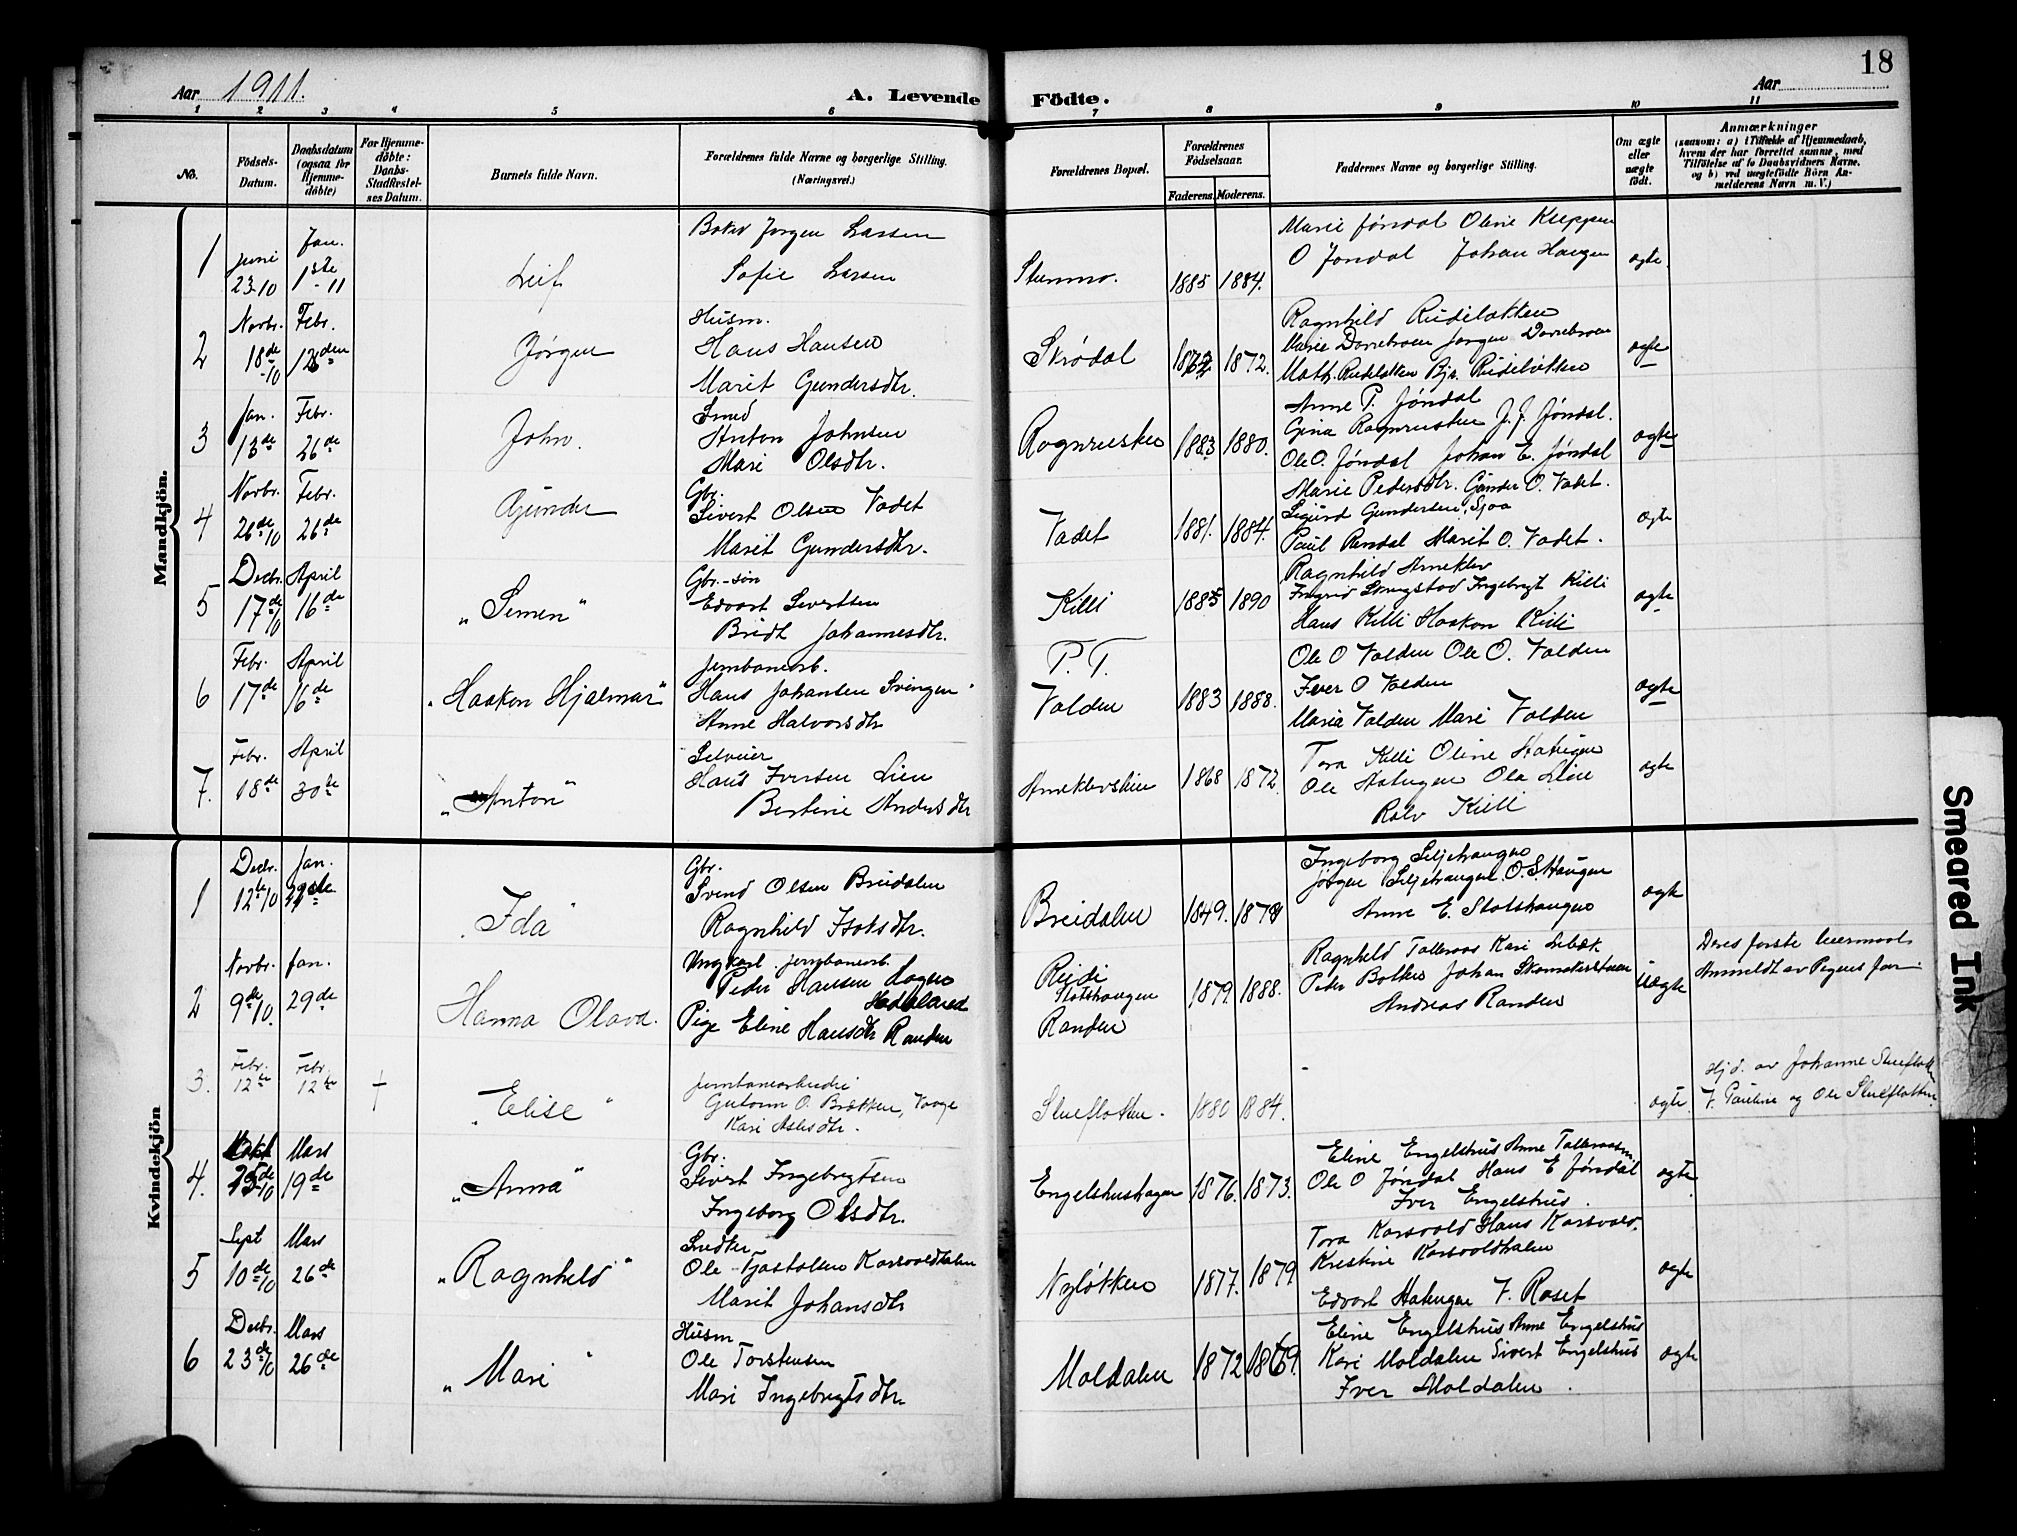 18
Aar 1911.
A. Levende Födte.
Aar
1 2 3 4 5 6 7 8 9 10 11
No.
Födsels-Datum.
Daabsdatum (ogsaa for Hjemmedöbte)
For Hjemmedöbte: Daabs-Stadfæstelses Datum.
Barnets fulde Navn.
Forældrenes fulde Navne og borgerlige Stilling. (Næringsvei.)
Forældrenes Bopæl.
Forældrenes Födselsaar.
Faderens. Moderens.
Faddernes Navne og borgerlige Stilling.
Om ægte eller uægte födt.
Anmærkninger
(saasom: a) i Tilfælde af Hjemmedaab, hvem der har forrettet samme, med Tilföielse af to Daabsvidners Navne. og b) ved uægtefödte Börn Anmelderens Navn m. V.)
Mandkjön.
1 Juni 23-10 Jan. 1ste-11
Leif
Jørgen Larsen
Sofie Larsen
1885 1884.
Marie Jøndal Oline Kleppen
O Jøndal Johan Haugen
ægte
2 Novbr. 18de/10 Febr. 12den
Jørgen
Husm.
Hans Hansen
Marit Gundersdtr.
Skrødal
1872.
Ragnhild Rudiløkken
ægte
3 Jan. 13de Febr. 26de
John.
Smed
Anton Johnsen
Mari Olsdtr.
Rognrusten
1883 1880.
Anne P. Jøndal
Gina Rognrusten J. J. Jøndal.
Ole O. Jøndal Johan E. Jøndal
ægte
4 Novbr. 26de/10 Febr. 26de
Gunder
Gbr.
Sivert Olsen Vadet
Marit Gundersdtr.
Vadet
1881. 1884.
Marie Pedersdtr. Gunder O. Vadet.
Sigurd Gundersen, Sjoa
Paul Randal Marit O. Vadet.
ægte
5 Decbr. 17de/10 April 16de
„Simen"
Gbr.-søn
Edvart Sivertsen
Bridt Johannesdtr.
Killi
1885 1890
Ragnhild Arneklev
Ingrid Skrugstad Ingebrigt Killi
Hans Killi Haakon Killi
ægte
6 Febr. 17de April 16de
„Haakon Hjalmar"
Jernbanearb.
Hans Johansen Svingen
Anne Halvorsdtr
P. T.
Valden
1883 1888.
Ole O Valden Ole O. Valden
Iver O Valden
Maria Valden Mari Valden
ægte
7. Febr. 18de April 30te
„Anton"
Selveier
Hans Iversen Lien
Bertine Andersdtr
Arneklevslien
1868 1872.
Tora Killi Oline Haugen
Ole Haugen Ola Lien
Rolv Killi
ægte
Kvindekjön
1 Decbr. 12te/10 Jan.
„Ida"
Gbr.
Svend Olsen Breidalen
Ragnhild Isaksdtr.
Breidalen
1849.
Ingeborg Siljehaugen
Jørgen Siljehaugen. O. S. Haugen
Anne E. Slotshaugen
ægte
2 Novbr. 9de/10. Jan. 29de
Hanna Olava.
Ungkarl. jernbanearb.
Peder Hansen
Pige Eline Hansdtr Randen
Slotshaugen
Randen
1879. 1888.
Andreas Randen
Uægte
Deres første leiermaal.
Anmeldt av Pigens far
3. Febr. 12te Febr. 12te †
„Elise"
Jernbanearbeider
Gutorm O. Brækken, Vaage
Kari Aslesdtr.
Slueflotten.
1880 1884.
ægte.
Hjd. av Johanne Slueflotten
V. Pauline og Ole Slueflotten.
4. Mars 19de
„Anna"
Gbr.
Sivert Ingebrigtsen
Ingeborg Olsdtr.
Engelshushagen
1876. 1873.
Eline Engelshus Anne
Ole O Jøndal Hans E Jøndal
Iver Engelshus.
ægte
5 Sept 10de/10 Mars 26de
„Ragnhild"
Snedker
Ole Tjostolsen Karsvoldhalen
Marit Johansdtr
Nyløkken
1877. 1879
Tora Karsvold Hans Karsvold.
Kristine Karsvoldhalen
Edvart Haugen V. Roset
ægte
6 Decbr. 23de/10 Mars 26de
„Mari"
Husm
Ole Torstensen
Mari Ingebrigtsdtr.
Moldalen
1872 1869.
Eline Engelshus Anne Engelshus
Kari Moldalen Sivert Engelshus
Iver Moldalen.
ægte
Smeared Ink